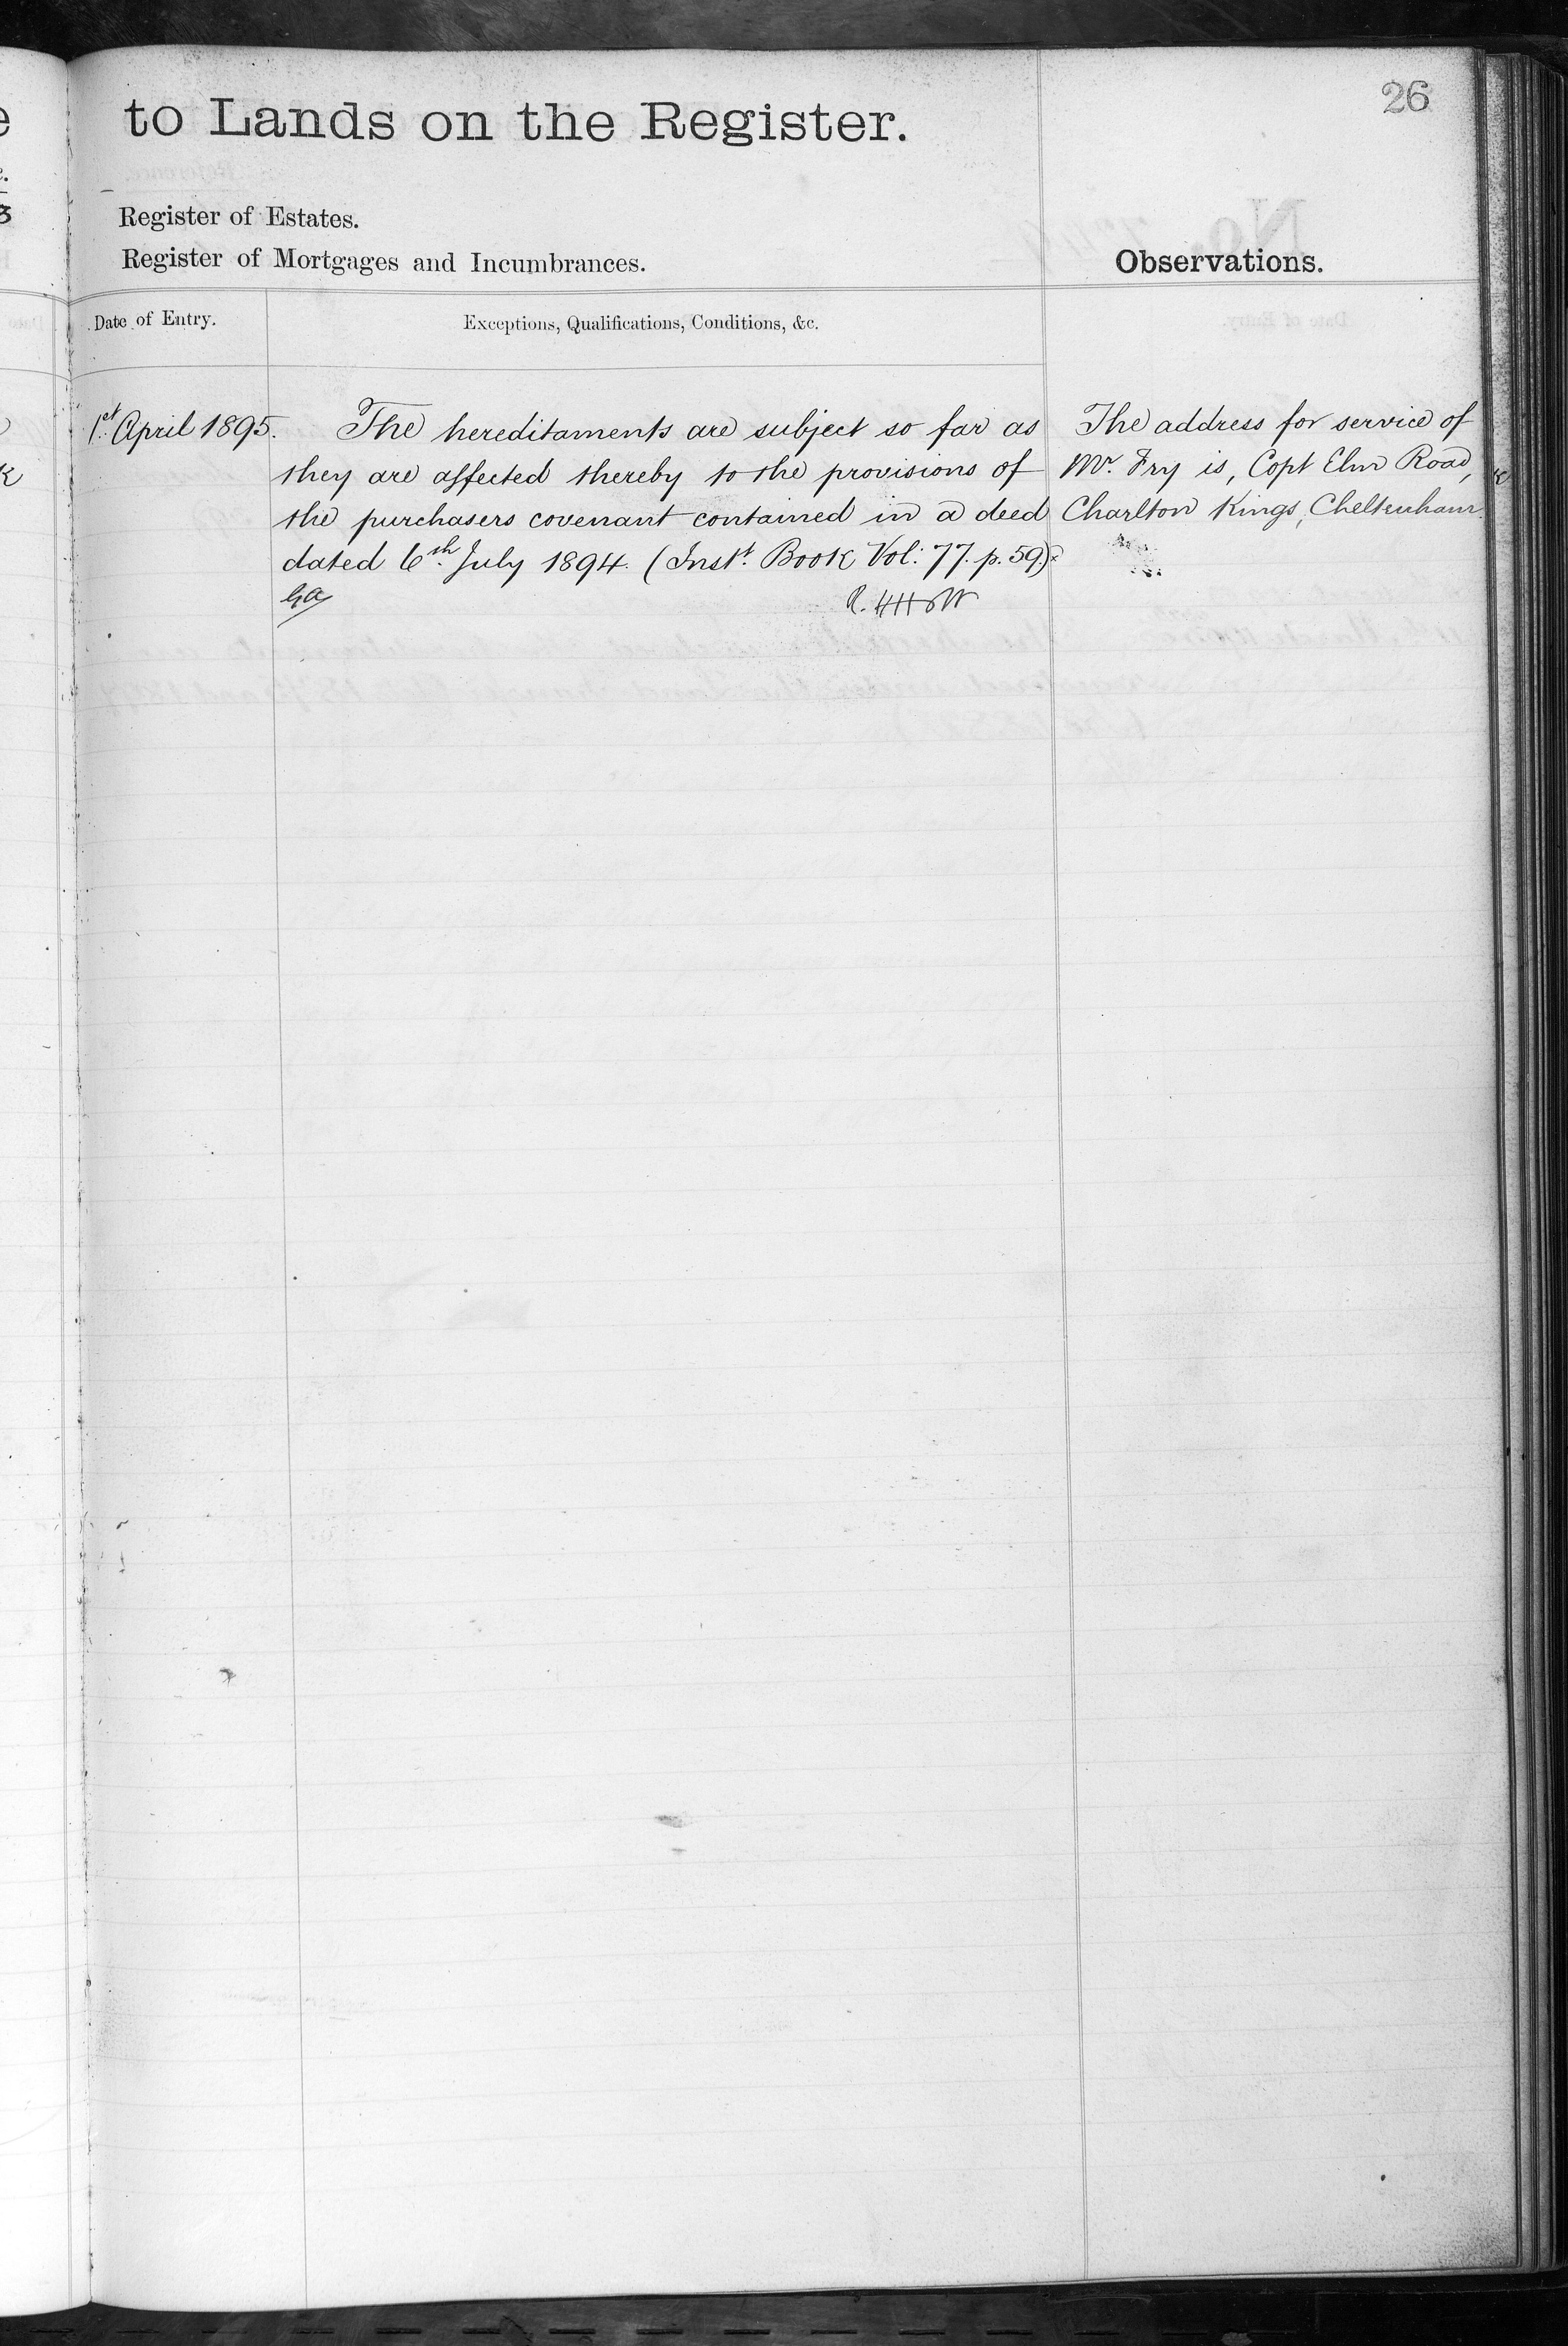 26
to Lands on the Register.
Register of Estates.
Register of Mortgages and Incumbrances.
Observations.
Date of Entry.
Exceptions, Qualifications, Conditions, &c.
1st April 1895.
The hereditaments are subject so far as
they are affected thereby to the provisions of
the purchasers covenant contained in a deed
dated 6th July 1894. (Inst. Book Vol: 77. p. 59.)
The address for service of
Mr. Fry is, Copt Elm Road,
Charlton Kings, Cheltenham.